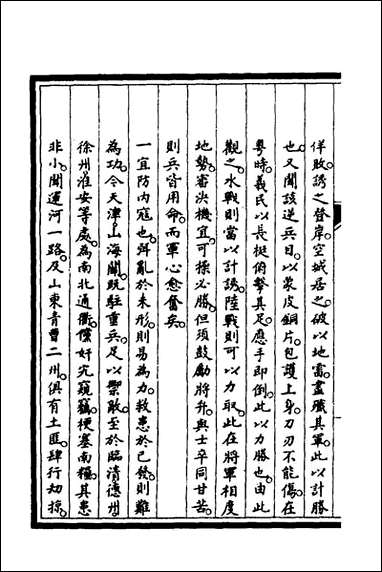 佯敗誘之登岸空城居之破以地雷盡殲其軍此以計勝
也又聞該逆兵目以蒙皮銅片包護上身刀刃不能傷在
粵時義民以長挺俯擊其足應手即倒此以力勝也由此
觀之水戰則當以計誘陸戰則可以力取此在將軍相度
地勢審決機宜可操必勝但須鼓勵將弁與士卒同甘苦
則兵皆用命而軍心愈奮矣
一宜防內寇也弭亂於未形則易為力救患於已發則難
為功今天津山海關既駐重兵足以禦敵至於臨清德州
徐州淮安等處為南北通衢儻奸宄窺竊梗塞南糧其患
非小聞運河一路及山東青曹二州俱有土匪肆行劫掠